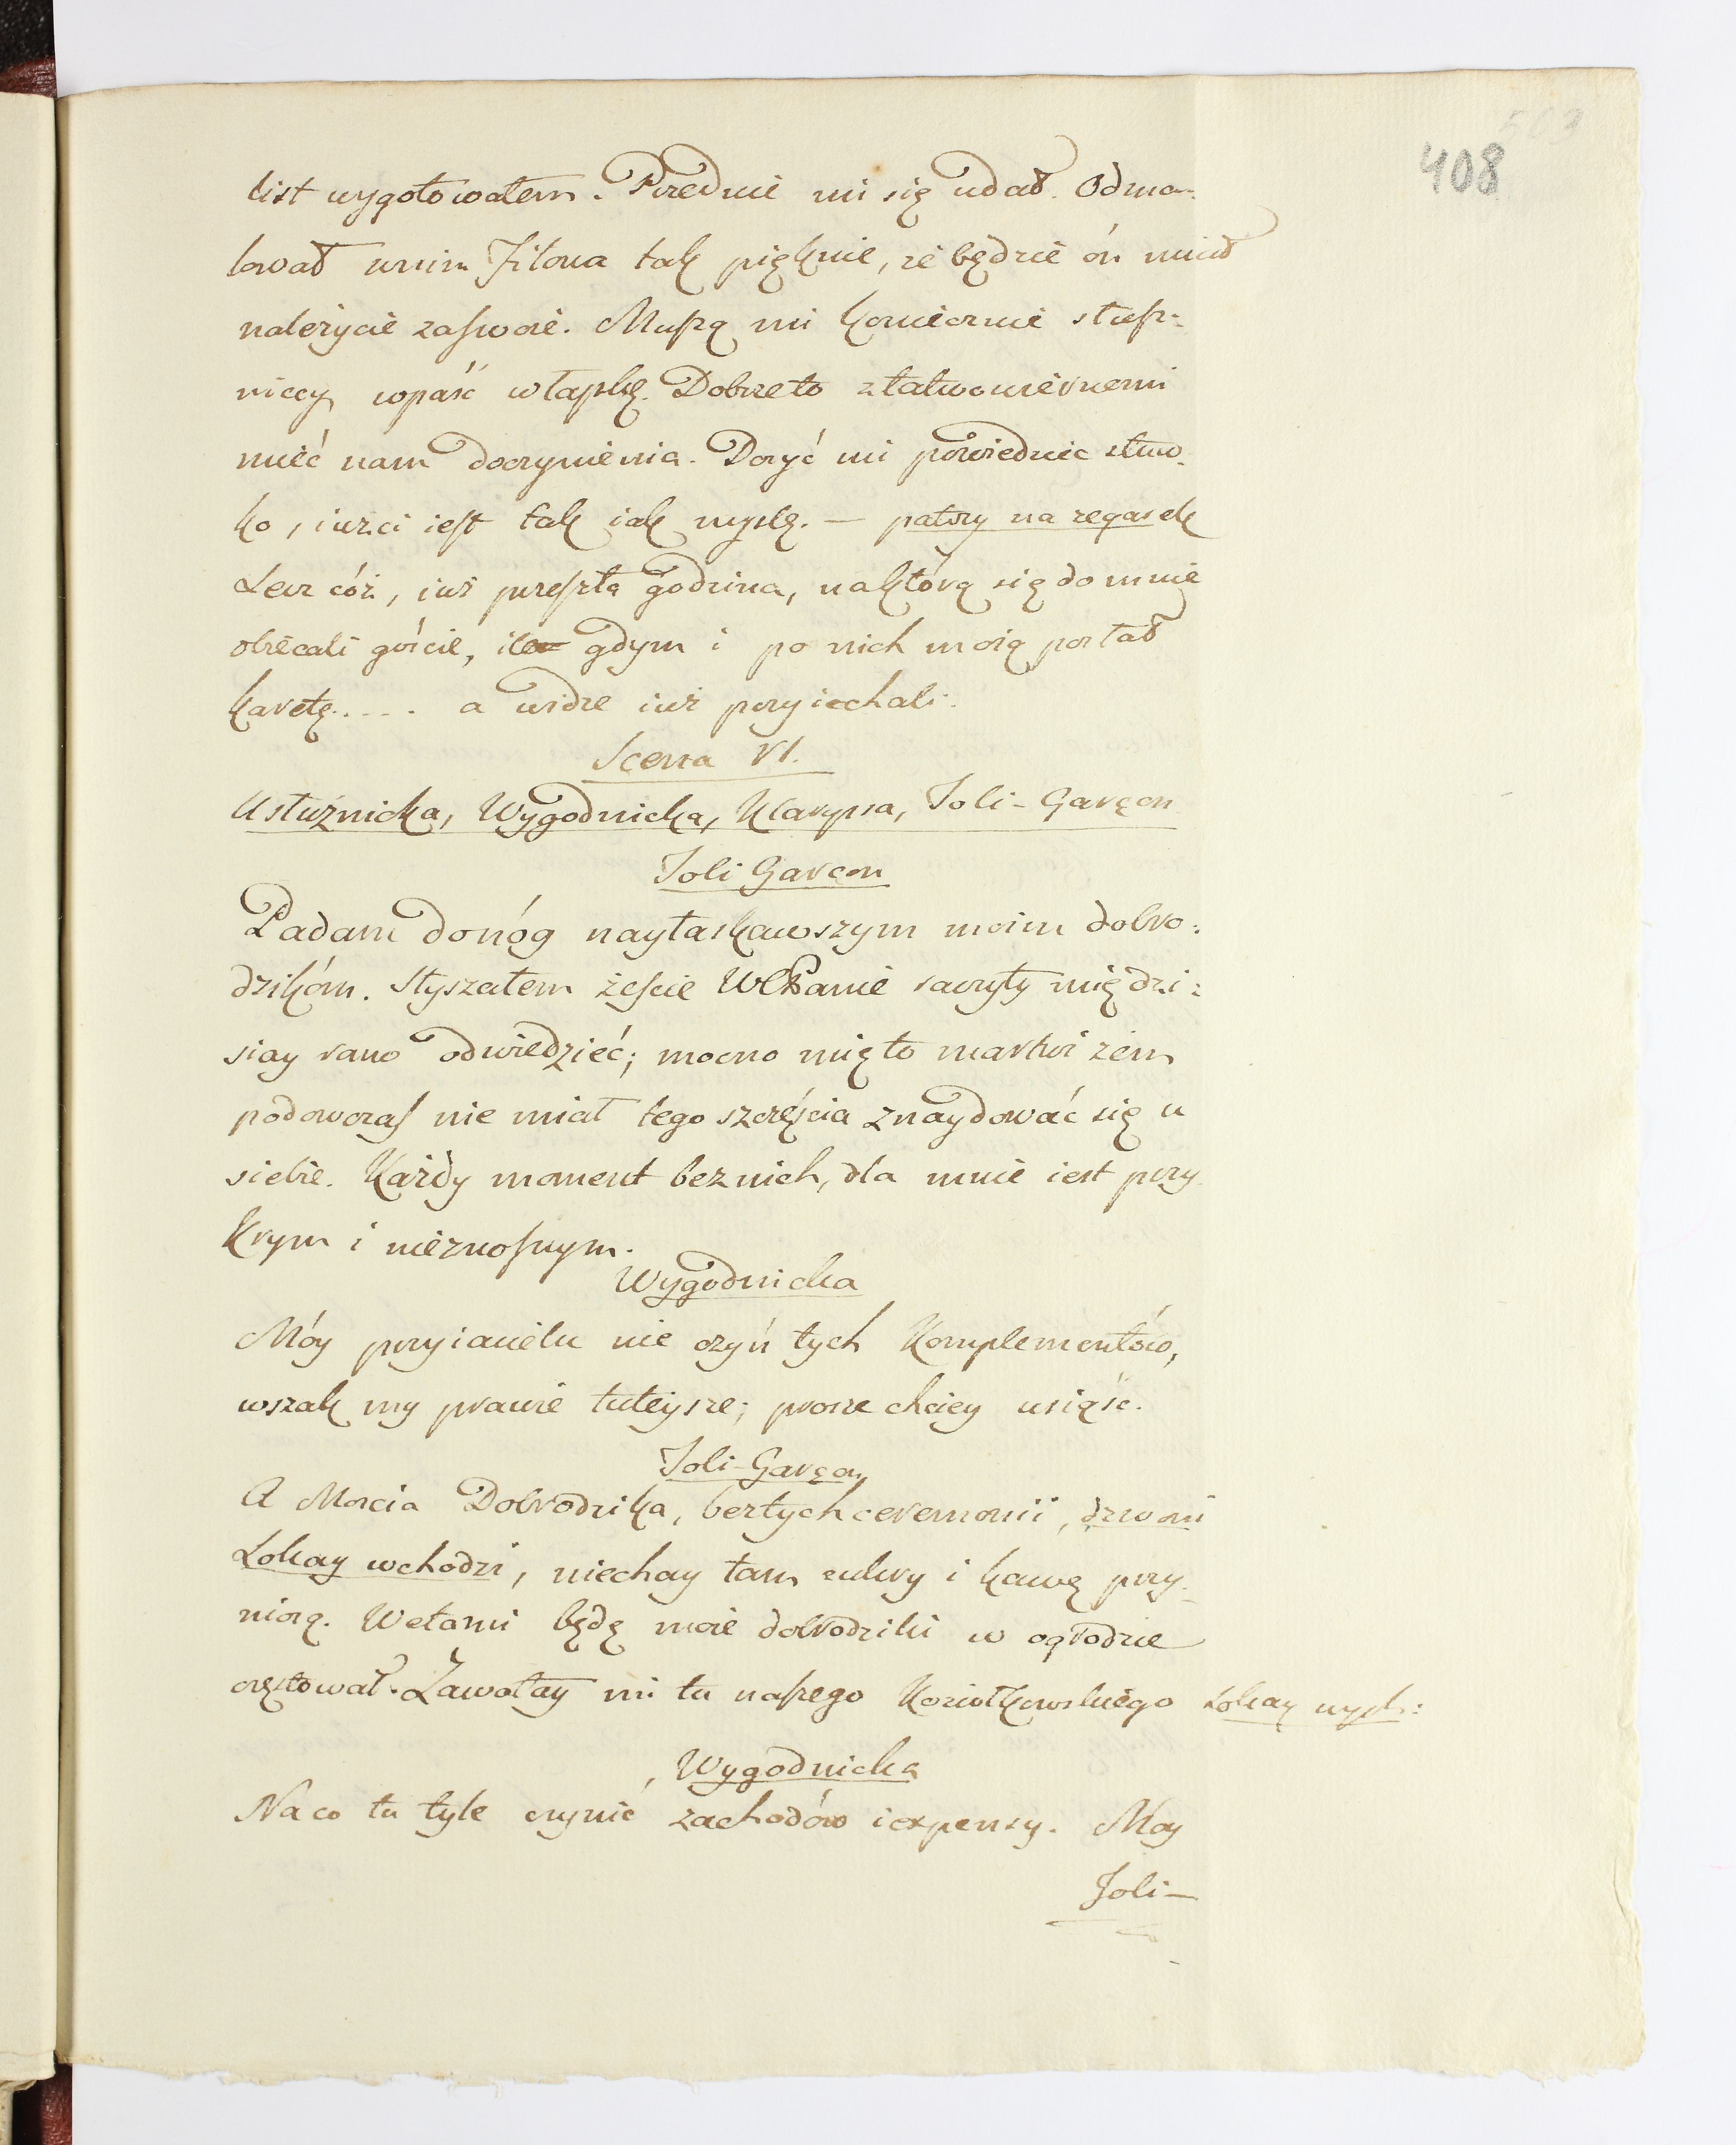 503
408
list wygotowałem. Przednie mi się udał. Odma-
lował wnim Filona tak pięknie, że będzie ón miał
należycie zaswoie. Muszą mi koniecznie słusz-
niccy wpaść włapkę. Dobrzeto złatwowiernemi
mieć nam doczynienia. Dosyć mi powiedziec słów-
ko, iużci iest tak iak myślę. — patrzy na zegarek
Lecz cóż, iuż przeszła godzina, naktórą się do mnie
obiecali goście, gdym i po nich moią posłał
karetę.... a widzę iuż przyiechali.
Scena VI.
Usłużnicka, Wygodnicka, Klaryssa, Joli-Garçon
Joli Garcon
Padam donóg nayłaskawszym moim dobro:
dzikóm. Słyszałem żeście WPanie raczyły mię dzi:
siay rano odwiedzieć; mocno mię to martwi żem
podowczas nie miał tego szczęścia znaydować się u
siebie. Każdy moment beznich, dla mnie iest przy
krym i nieznosnym.
Wygodnicka
Móy przyiacielu nie czyń tych Komplementów,
wszak my prawie tuteysze; prosze chciey usiąść.
Joli-Garçon
A Moscia Dobrodzika, beztych ceremonii, dzwoni
Lokay wchodzi, niechay tam cukry i kawę przy-
niosą. Wetami będę moie dobrodziki w ogrodzie
częstował. Zawołay mi tu naszego Koziołkowskiego Lokay wych:
Wygodnicka
Naco tu tyle czynić zachodów iexpensy. Moy
Joli-